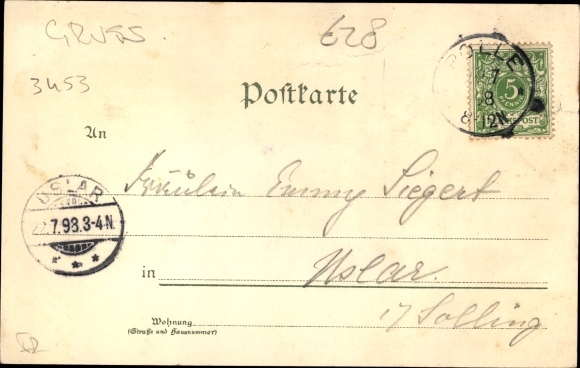 GRUSS
628
3453
POLLE
7
8
8-2N
5
PFENNIG
REICHSPOST
Postkarte
An
Fräulein Emmy Siegert
USLAR
7.98.3-4N.
in Uslar.
i/ Solling
Wohnung
(Straße und Hausnummer)